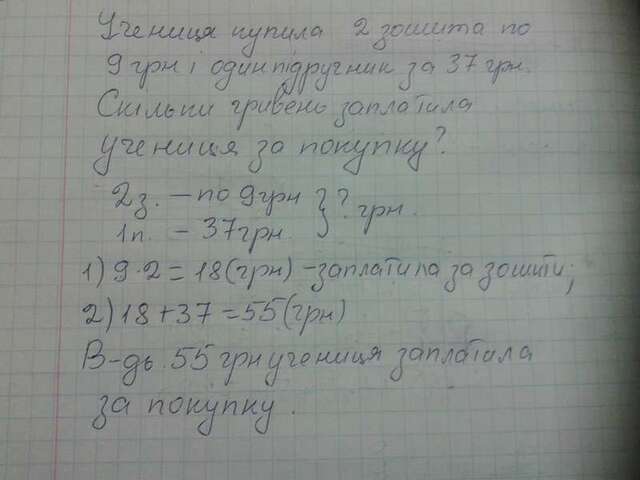 Учениця купила 2 зошита по
9 грн і один підручник за 37 грн.
Скільки гривень заплатила
учениця за покупку?
2з. – по 9грн } ? грн.
1п. – 37грн.
1) 9·2=18(грн) – заплатила за зошити;
2) 18+37=55(грн)
В-дь. 55 грн учениця заплатила
за покупку.